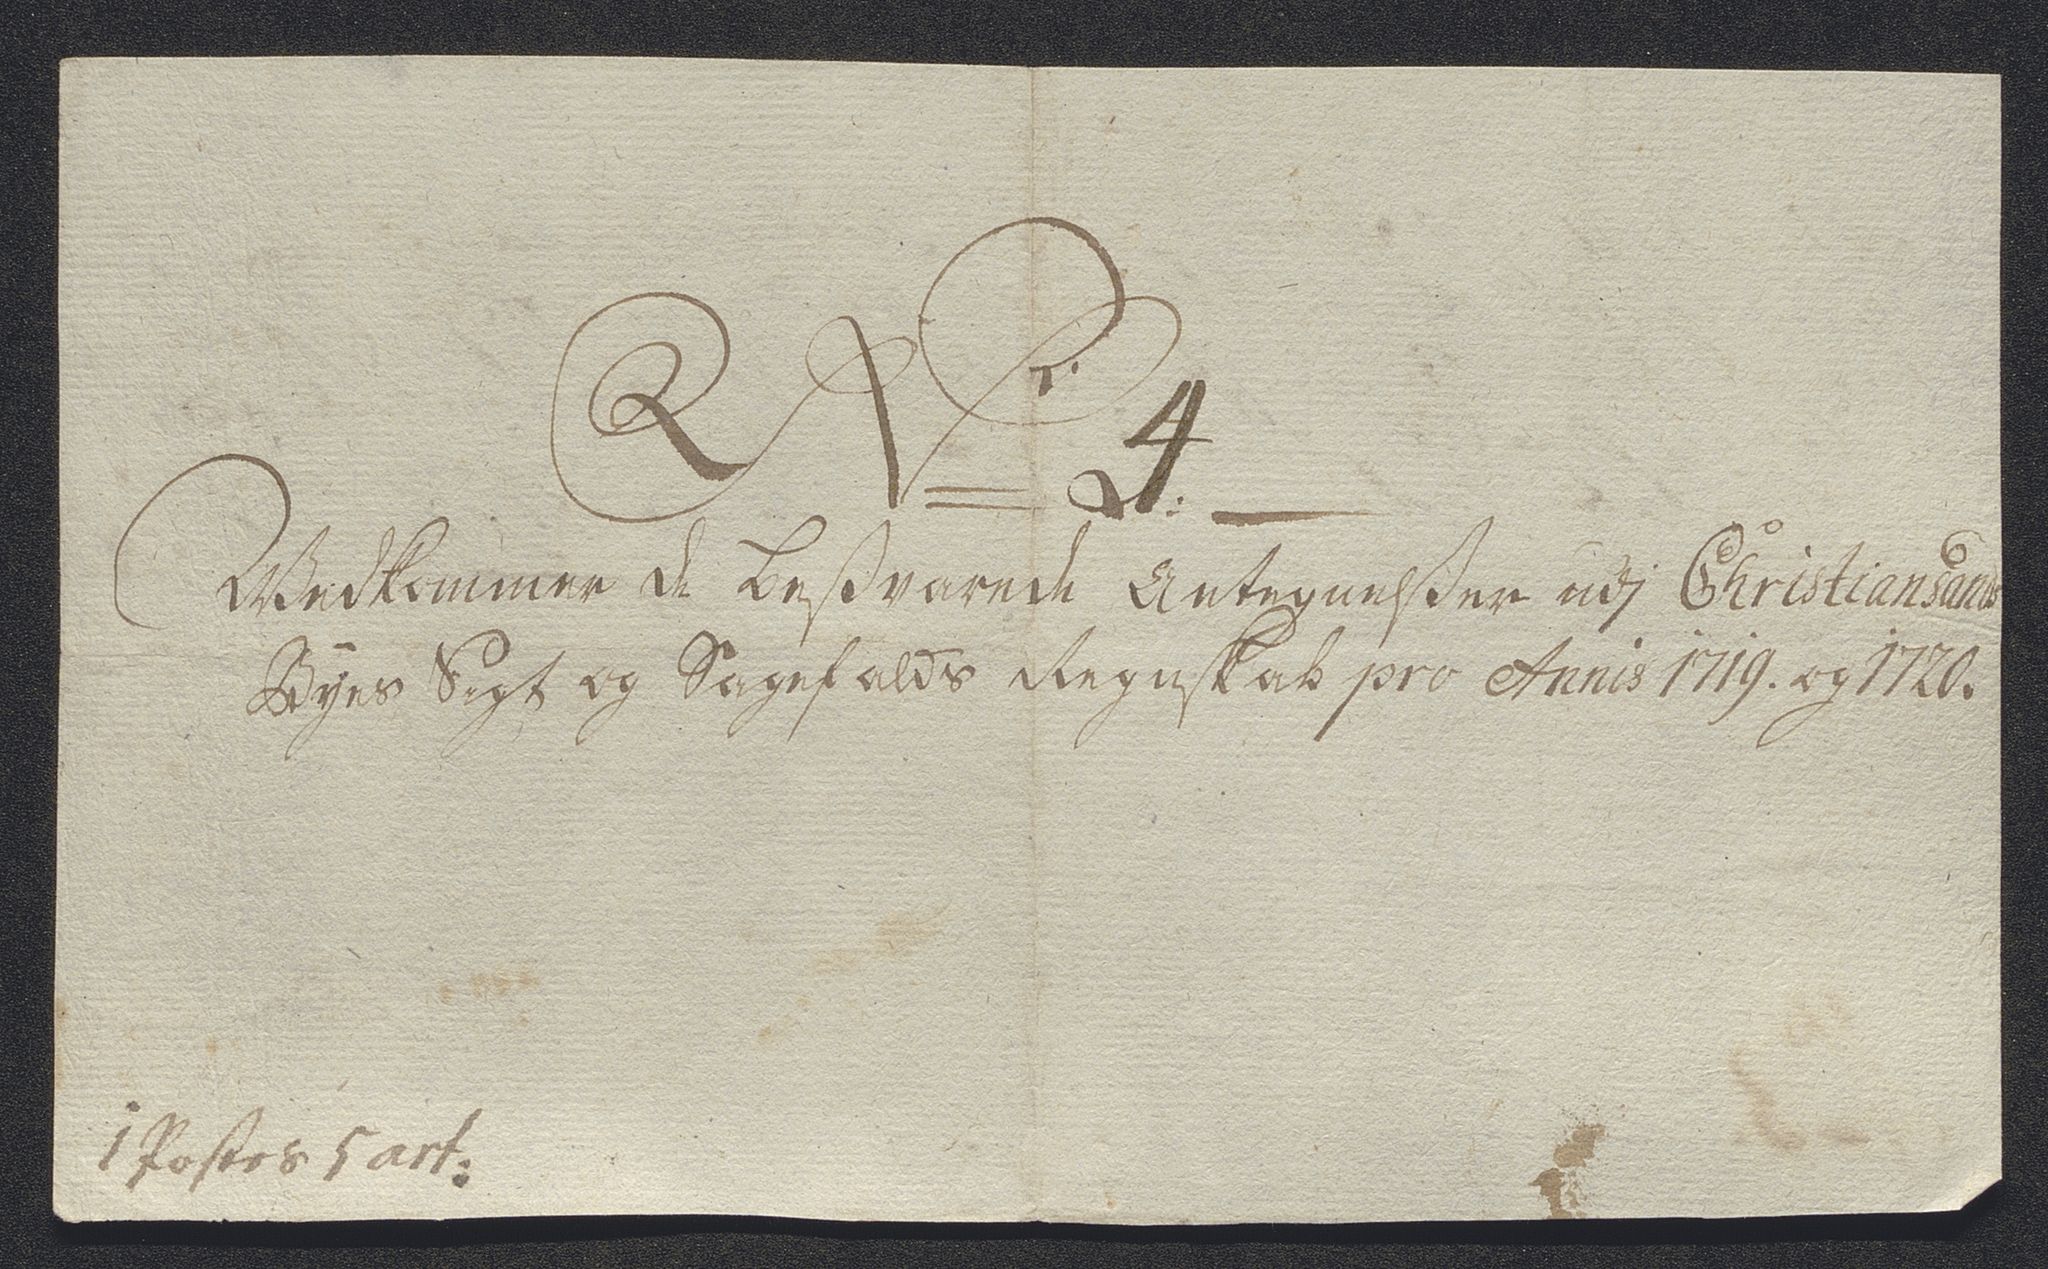 No. 4.
Vedkommer de besvarede Antegnelsser udj Christiansands
Byes Sigt og Sagefalds Regnskab pro Annis 1719. og 1720.
1 Postes 5 art: